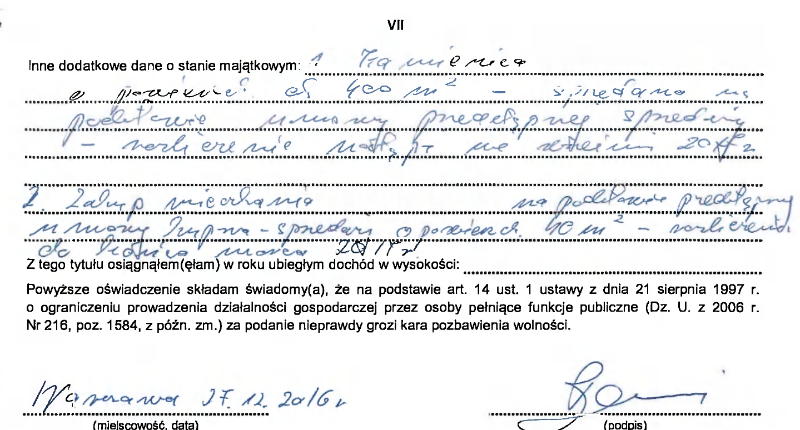 VII
Inne dodatkowe dane o stanie majątkowym: 1. Kamienica
o pow. ok 400 m² - sprzedana na
podstawie umowy przedwstępnej sprzedaży
- rozliczenie nastąpi we wrześniu 2017 r
2. Zakup mieszkania na podstawie przedwstępnej
umowy kupna-sprzedaży o powierzch. 40 m² - rozliczenie
do końca marca 2017 r
Z tego tytułu osiągnąłem(ęłam) w roku ubiegłym dochód w wysokości:
Powyższe oświadczenie składam świadomy(a), że na podstawie art. 14 ust. 1 ustawy z dnia 21 sierpnia 1997 r.
o ograniczeniu prowadzenia działalności gospodarczej przez osoby pełniące funkcje publiczne (Dz. U. z 2006 r.
Nr 216, poz. 1584, z późn. zm.) za podanie nieprawdy grozi kara pozbawienia wolności.
Warszawa 27.12.2016 r
(miejscowość, data) (podpis)